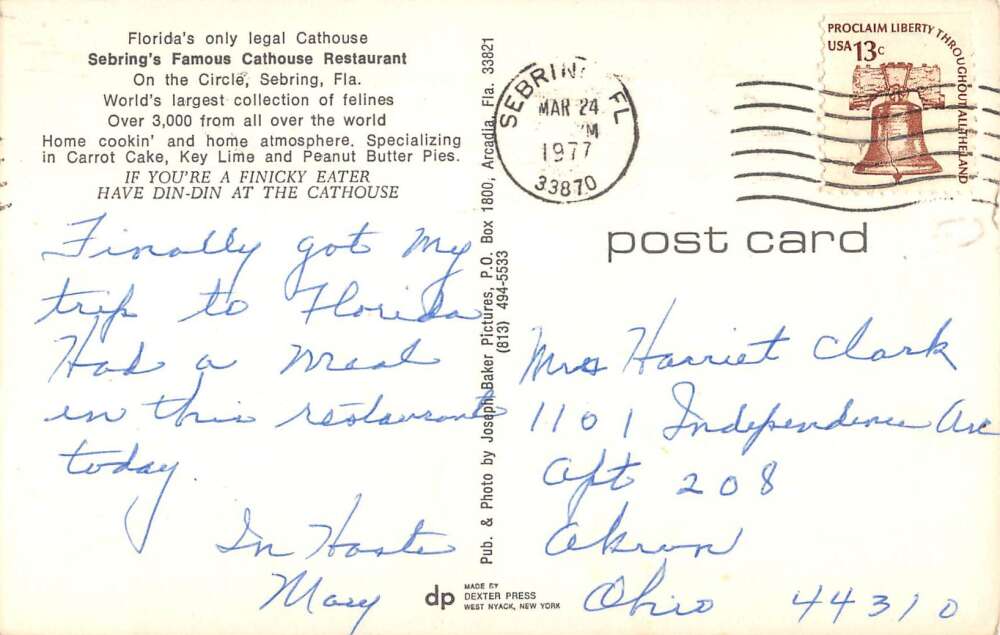 Florida's only legal Cathouse
Sebring's Famous Cathouse Restaurant
On the Circle, Sebring, Fla.
World's largest collection of felines
Over 3,000 from all over the world
Home cookin' and home atmosphere. Specializing
in Carrot Cake, Key Lime and Peanut Butter Pies.
IF YOU'RE A FINICKY EATER
HAVE DIN-DIN AT THE CATHOUSE
Finally got my
trip to Florida
Had a meal
in this restaurant
today.
In Haste
Mary
Pub. & Photo by Joseph Baker Pictures, P.O. Box 1800, Arcadia, Fla. 33821
(813) 494-5533
dp
MADE BY
DEXTER PRESS
WEST NYACK, NEW YORK
SEBRING FL
MAR 24
1977
33870
PROCLAIM LIBERTY THROUGHOUT ALL THE LAND
USA 13c
post card
Mrs Harriet Clark
1101 Independence Ave
Apt 208
Akron
Ohio 44310